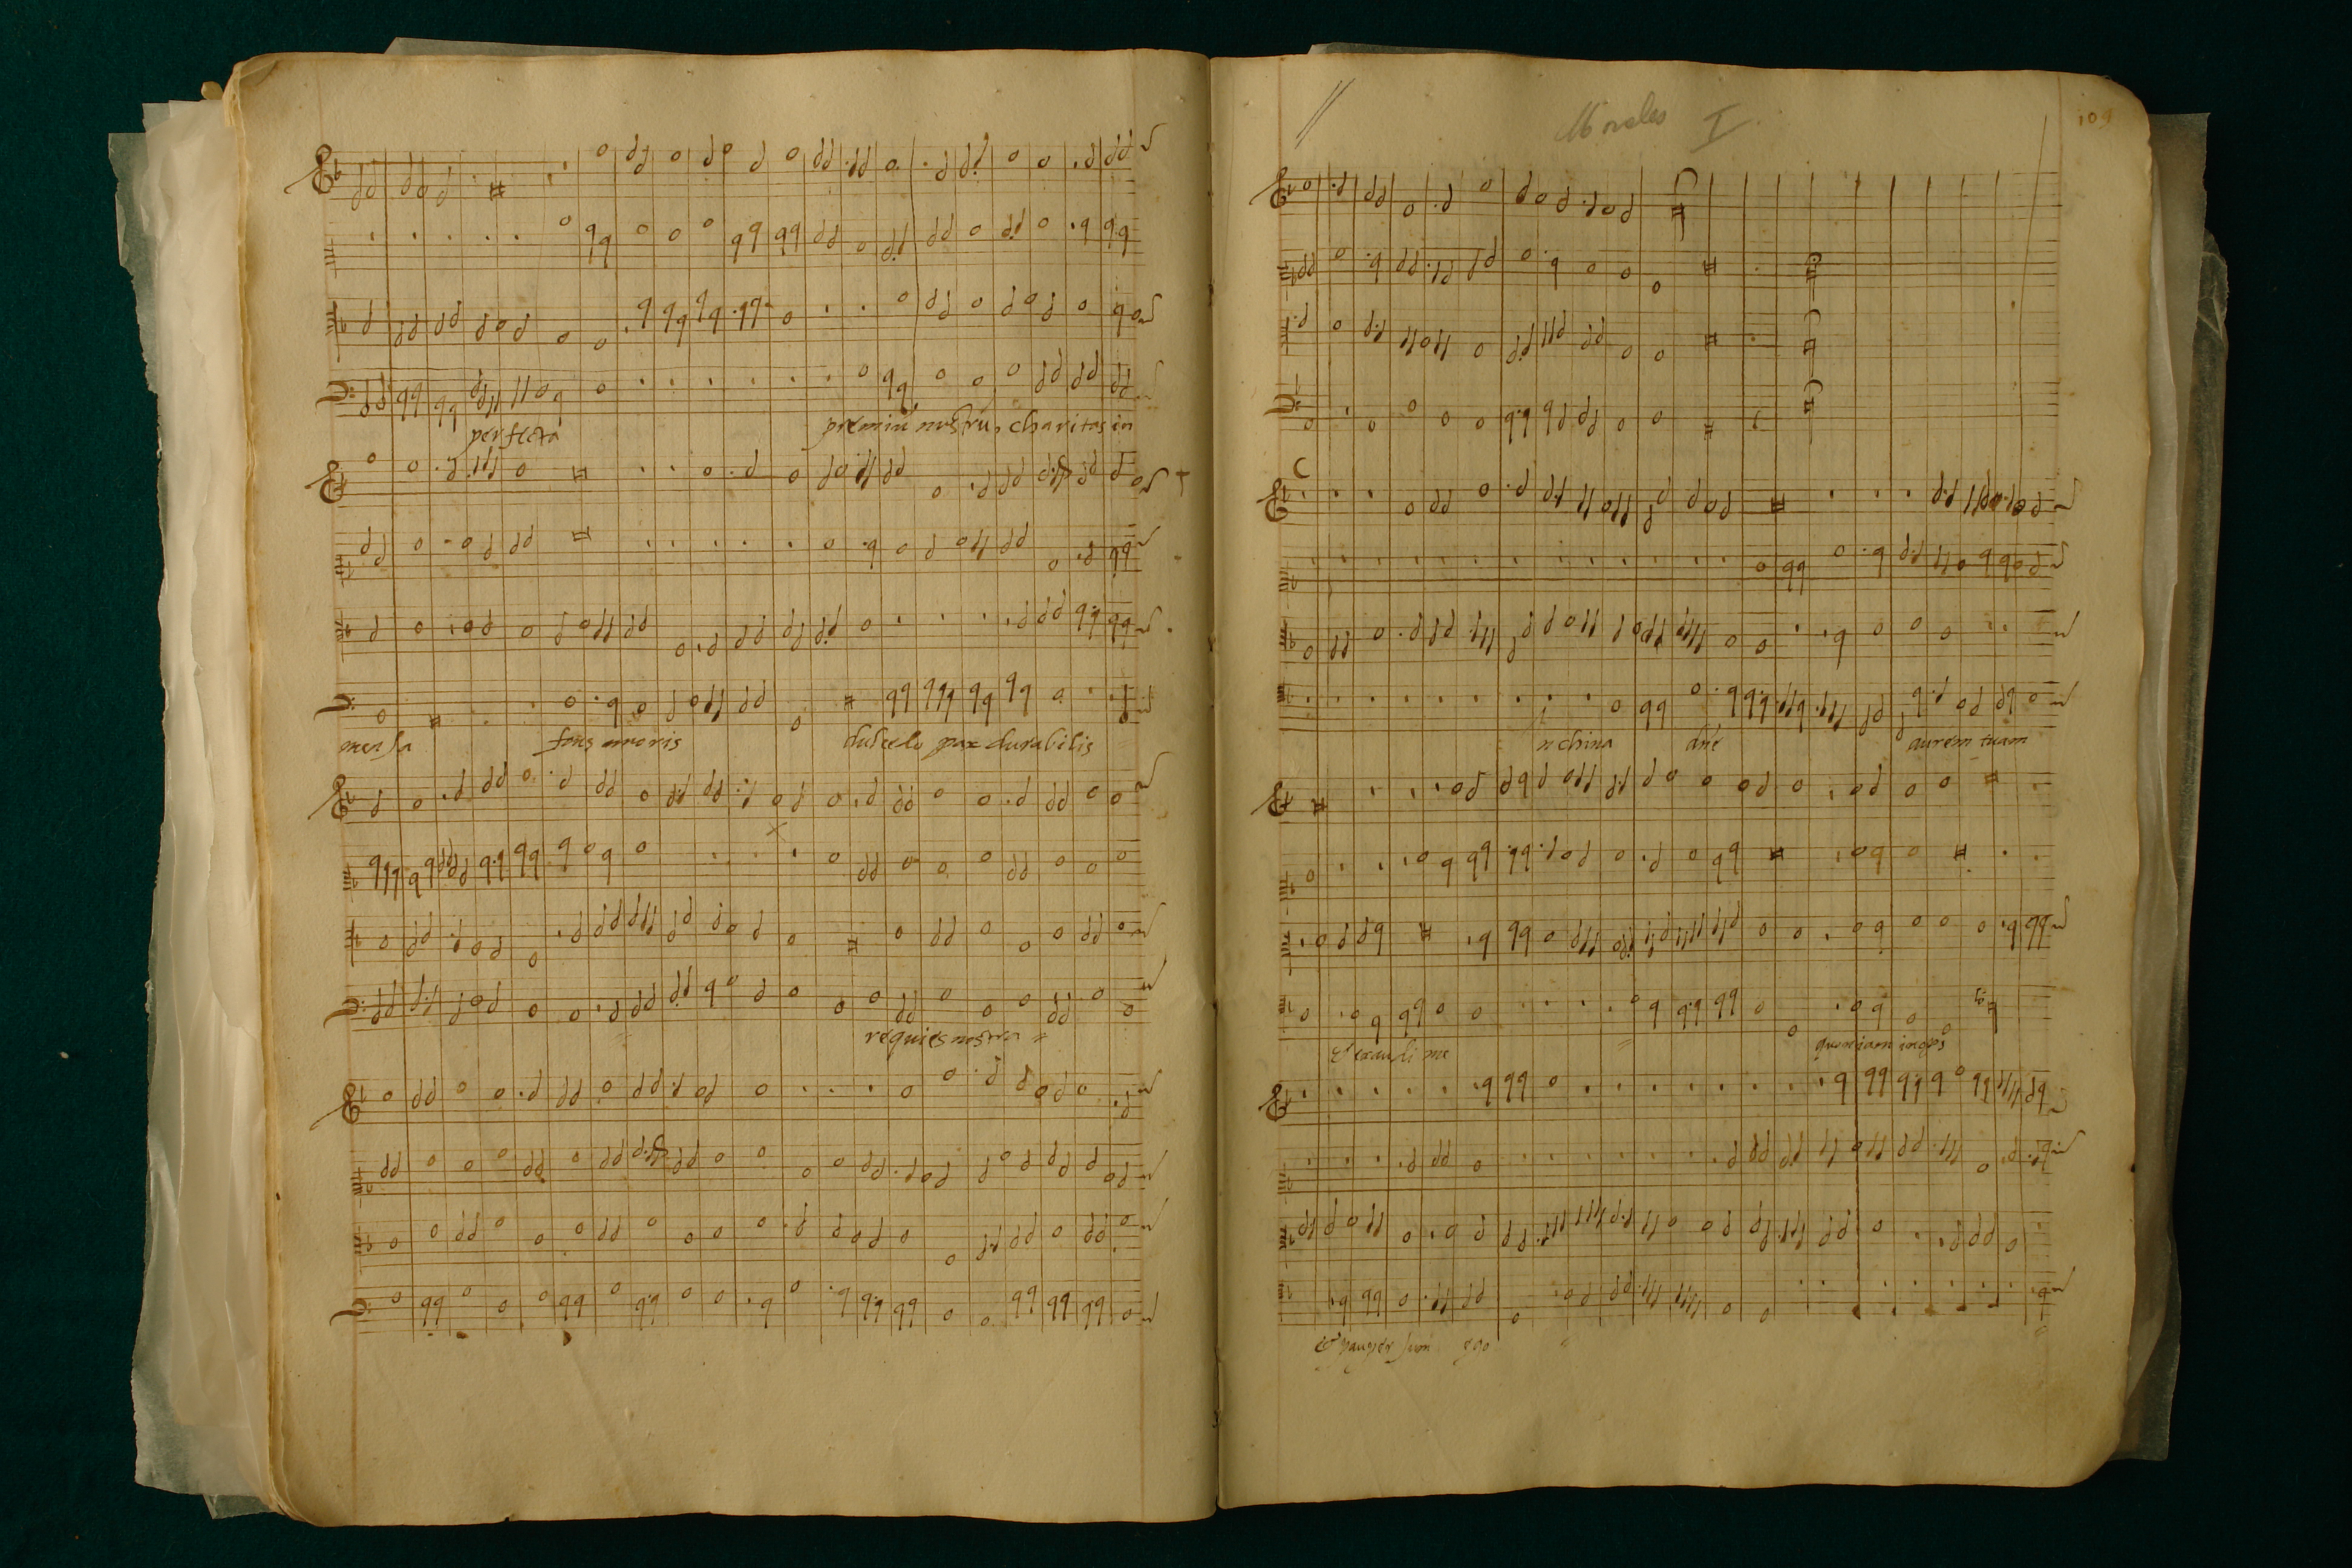 perfecta
premiũ nostrũ charitas in
mensa fons amoris dulcedo pax durabilis
requies nostra =
Morales I
109
nclina dñe aurem tuam
& exaudi me = quoniam inops
& pauper sum ego =